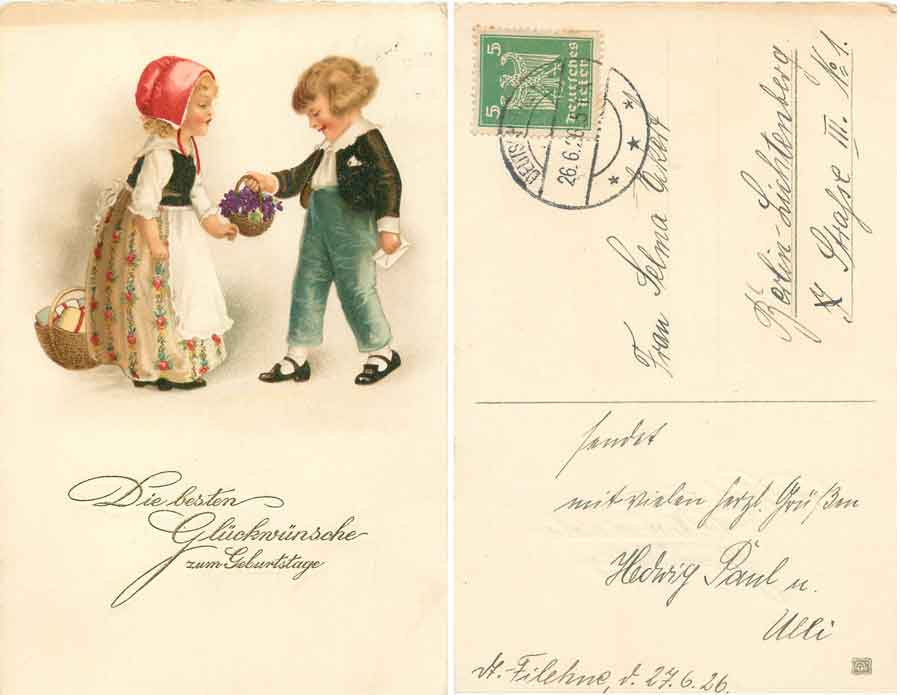 Die besten
Glückwünsche
zum Geburtstage
5
5
Deutsches
Reich
26.6.26
Frau Selma
Berlin-Lichtenberg.
Straße III. № 1.
sendet
mit vielen herzl. Grüßen
Hedwig Paul u.
Ulli
dt.-Filehne, d. 27.6.26.